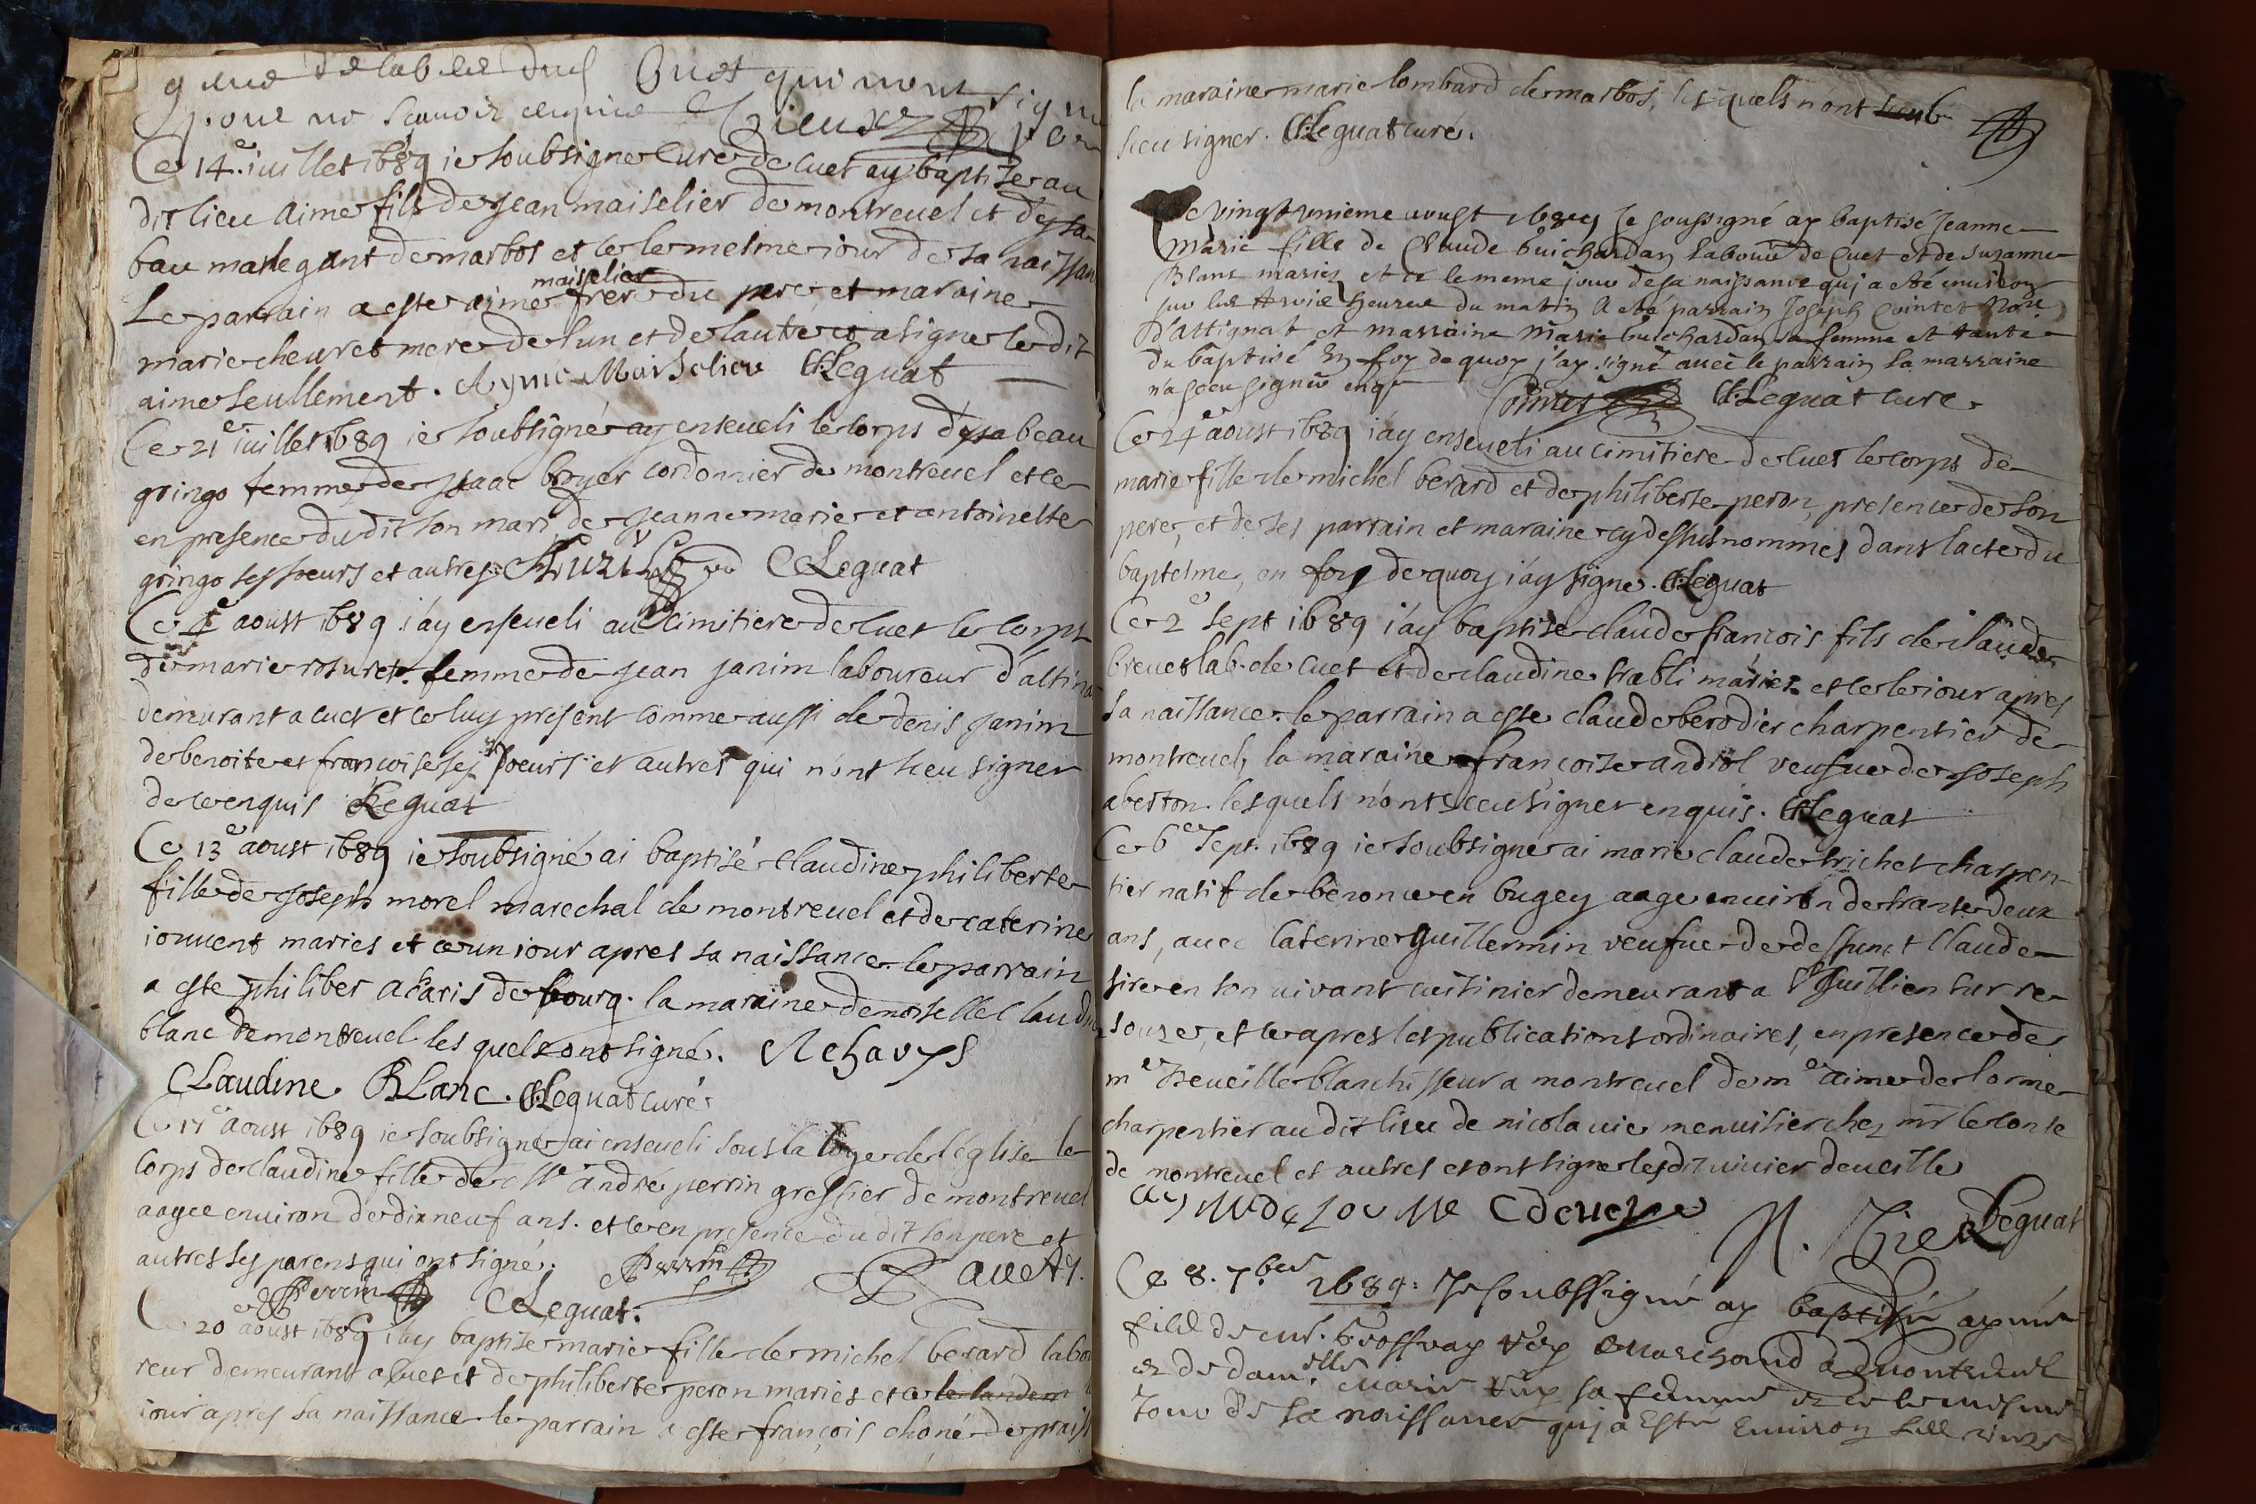 de labeur dud Cuet qui nont signe
pour ne scavoir enquis
Ce 14.e iuillet 1689 ie soubsigne cure de cuet ay baptize au
dit lieu aime fils de jean maiselier de montreuel et dysa
bau malegant de marbos et ce le mesme iour de sa naissan
Le parrain a este aime maiselier frere du pere et maraine
marie cheuret mere de lun et de lautre et a signe le dit
aime seullement. Ayme Maiselier CLeguat
Ce 21e iuillet 1689 ie soubsigné ay enseueli le corps dysabeau
gringo femme de jsaac broyer cordonnier de montreuel et ce
en presence du dit son mari de jeanne marie et antoinette
gringo ses soeurs et autres CLeguat
Ce 4e aoust 1689 i'ay enseueli au cimitiere de cuet le corps
de marie rosuret femme de jean janim laboureur d'attina
demeurant a cuet et ce luy present comme aussi de denis janim
de benoite et françoise ses soeurs et autres qui n'ont sceu signer
de ce enquis CLeguat
Ce 13e aoust 1689 ie soubsigné ai baptisé claudine philiberte
fille de joseph morel marechal de montreuel et de caterine
iouuent mariés et ce un iour apres sa naissance. le parrain
a este philiber acaris de bourg. la maraine demoiselle claudine
blanc de montreuel les quels ont signé. Acharys
CLaudine BLanc. CLeguat curé
Ce 17e aoust 1689 ie soubsigné ai enseueli sous la loge de l'eglise le
corps de claudine fille de Mre andré perrin greffier de montreuel
aagee enuiron de dix neuf ans. et ce en presence du dit son pere et
autres ses parens qui ont signé. Perrin
Perrin CLeguat.
Ce 20e aoust 1689 i'ay baptize marie fille de michel berard labou
reur demeurant a cuet et de philiberte peron mariés et ce le landem
iour apres sa naissance le parrain a este françois choné de
la maraine marie lombard de marbos, lesquels n'ont sceub
sceu signer. CLeguat curé.
Ce vingt unieme aoust 1689 Je soussigné ay baptisé Jeanne
Marie fille de Claude buichardan Laboure de Cuet et de Suzanne
Blanc mariez et ce le meme jour de sa naissance qui a eté enuiron
sur les trois heures du matin a eté parrain Joseph Cointet
D'attignat et marraine Marie buichardan sa femme et tante
du baptisé En foy de quoy j'ay signé avec le parrain la marraine
n'a sceu signer enq Cointet CLeguat cure
Ce 24e aoust 1689 i'ay enseueli au cimitiere de cuet le corps de
marie fille de michel berard et de philiberte peron, presence de son
pere, et de ses parrain et maraine cy dessus nommes dans lacte du
baptesme, en foy de quoy i'ay signe. CLeguat
Ce 2e sept 1689 i'ay baptize claude françois fils de claude
breuet lab. de cuet et de claudine trabli mariez et ce le iour apres
sa naissance. le parrain a este claude berodier charpentier de
montreuel, la maraine françoise andriol veufue de joseph
abeston. lesquels n'ont sceu signer enquis. CLeguat
Ce 6e sept. 1689 ie soubsigne ai marié claude trichet charpen
tier natif de benonce en bugey aage enuiron de trante deux
ans, auec caterine guillermin veufue de deffunct claude
sire en son uiuant cuisinier demeurant a St Juillien sur re
souze, et ce apres les publications ordinaires, en presence de
me deueille blanchisseur a montreuel de me aime de lorme
charpentier au dit lieu de nicola uie menuisier chez mr le conte
de montreuel et autres et ont signe lesdit uiuier deueille
ay M de LorMe C deueille
N. Vie CLeguat
Ce 8. 7.bre 1689: Je soubssigné ay baptisé aymé
filz de mr. Geoffray Very Marchand a Montreuel
et de dam.elle Marie Very sa femme et ce le mesme
Jour de sa naissance qui a Esté Enuiron